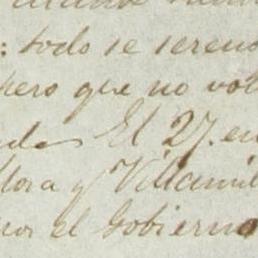 : todo se sereno
pero que no vol
El 27. en
llora y Villamil
por el Gobierno